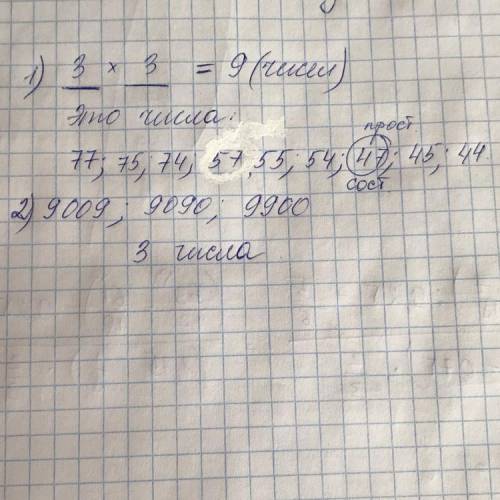 1) 3 × 3 = 9 (чисел)
Это числа:
прост
77; 75; 74; 57, 55; 54; 47; 45; 44.
сост
2) 9009; 9090; 9900
3 числа